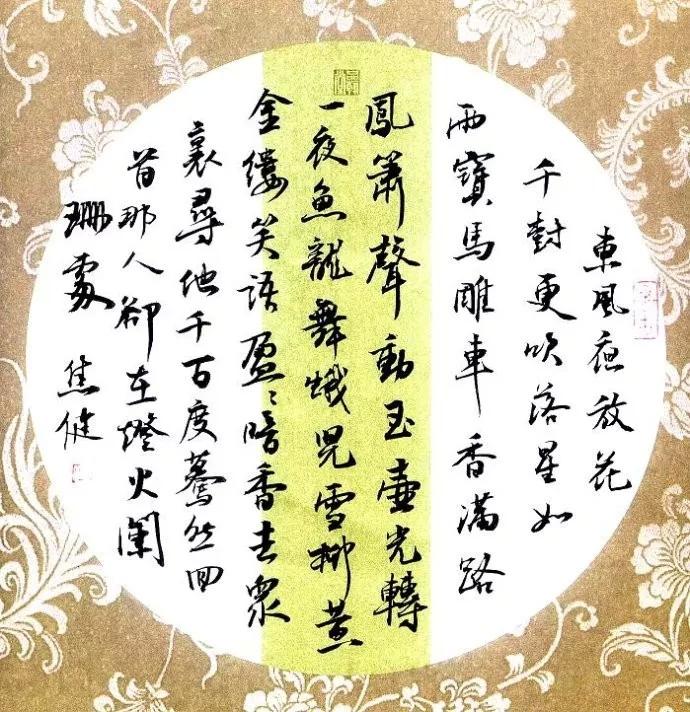 東風夜放花
千樹更吹落星如
雨寶馬雕車香滿路
鳳簫聲動玉壺光轉
一夜魚龍舞蛾兒雪柳黃
金縷笑語盈〻暗香去衆
裏尋他千百度驀然回
首那人卻在燈火闌
珊處 焦健